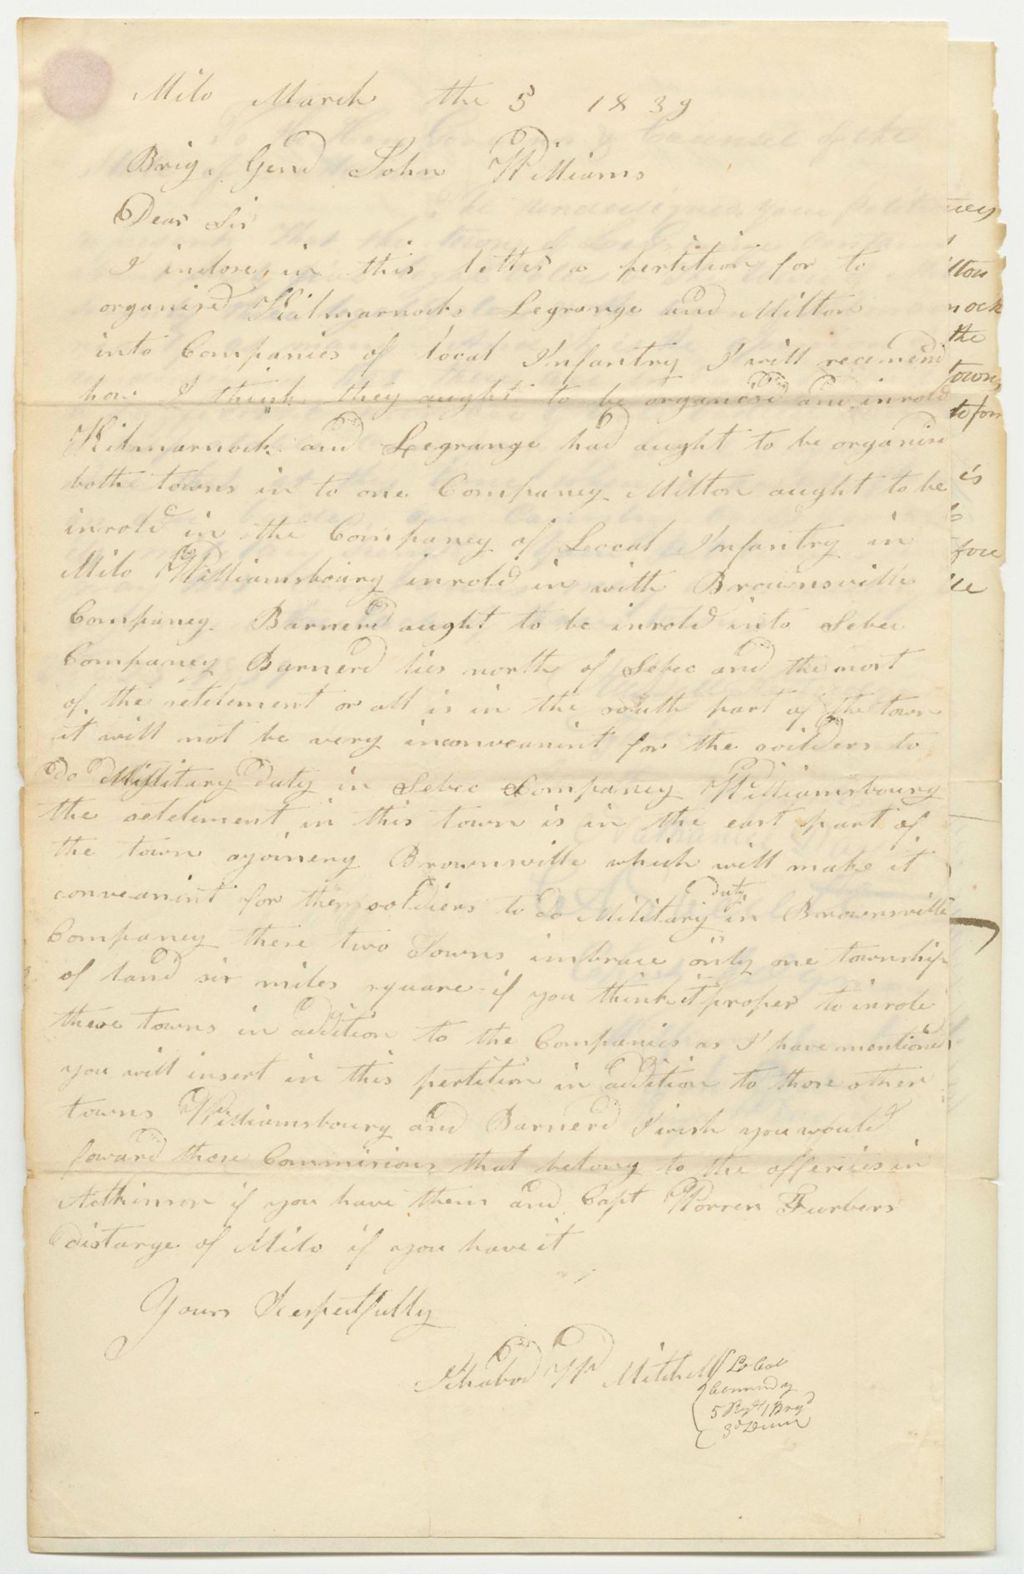 Milo March the 5 1839
Brig. Genrl John Williams
Dear Sir
I inclose, in this letter a pertition for to
organised Kilmarnock Legrange and Milton
into Companies of local Infantry I will recmend
how I think they aught to be organised and inrold
Kilmarnock and Legrange had aught to be organise
both towns in to one Companey. Milton aught to be
inrold in the Companey of Loocal Infantry in
Milo Williamsbourg inrold in with Brownsville
Companey. Barnerd aught to be inrold into Sebec
Companey Barnerd lies north of Sebec and the most
of the setelement or all is in the south part of the town
it will not be very inconveanint for the soilders to
do Military duty in Sebec Companey Williamsbourg
the setelement in this town is in the east part of
the town ajoinery Brownville which will make it
conveanint for them soldiers to do Military duty in Brownsville
Companey these two Towns imbrace only one township
of land six miles square if you think it proper to inrole
these towns in adition to the Companies as I have mentioned
you will insert in this pertition in adition to those other
towns Williamsbourg and Barnerd I wish you would
foward those Commisions that belong to the afficies in
Adkinson if you have them and Capt Worren Furbers
distarge of Milo if you have it
Yours Respectfully
Ichabod W Mitchell Lt Col
Commndg
5 Regt 1 Brgd
3d Divn
the
town
to form
is